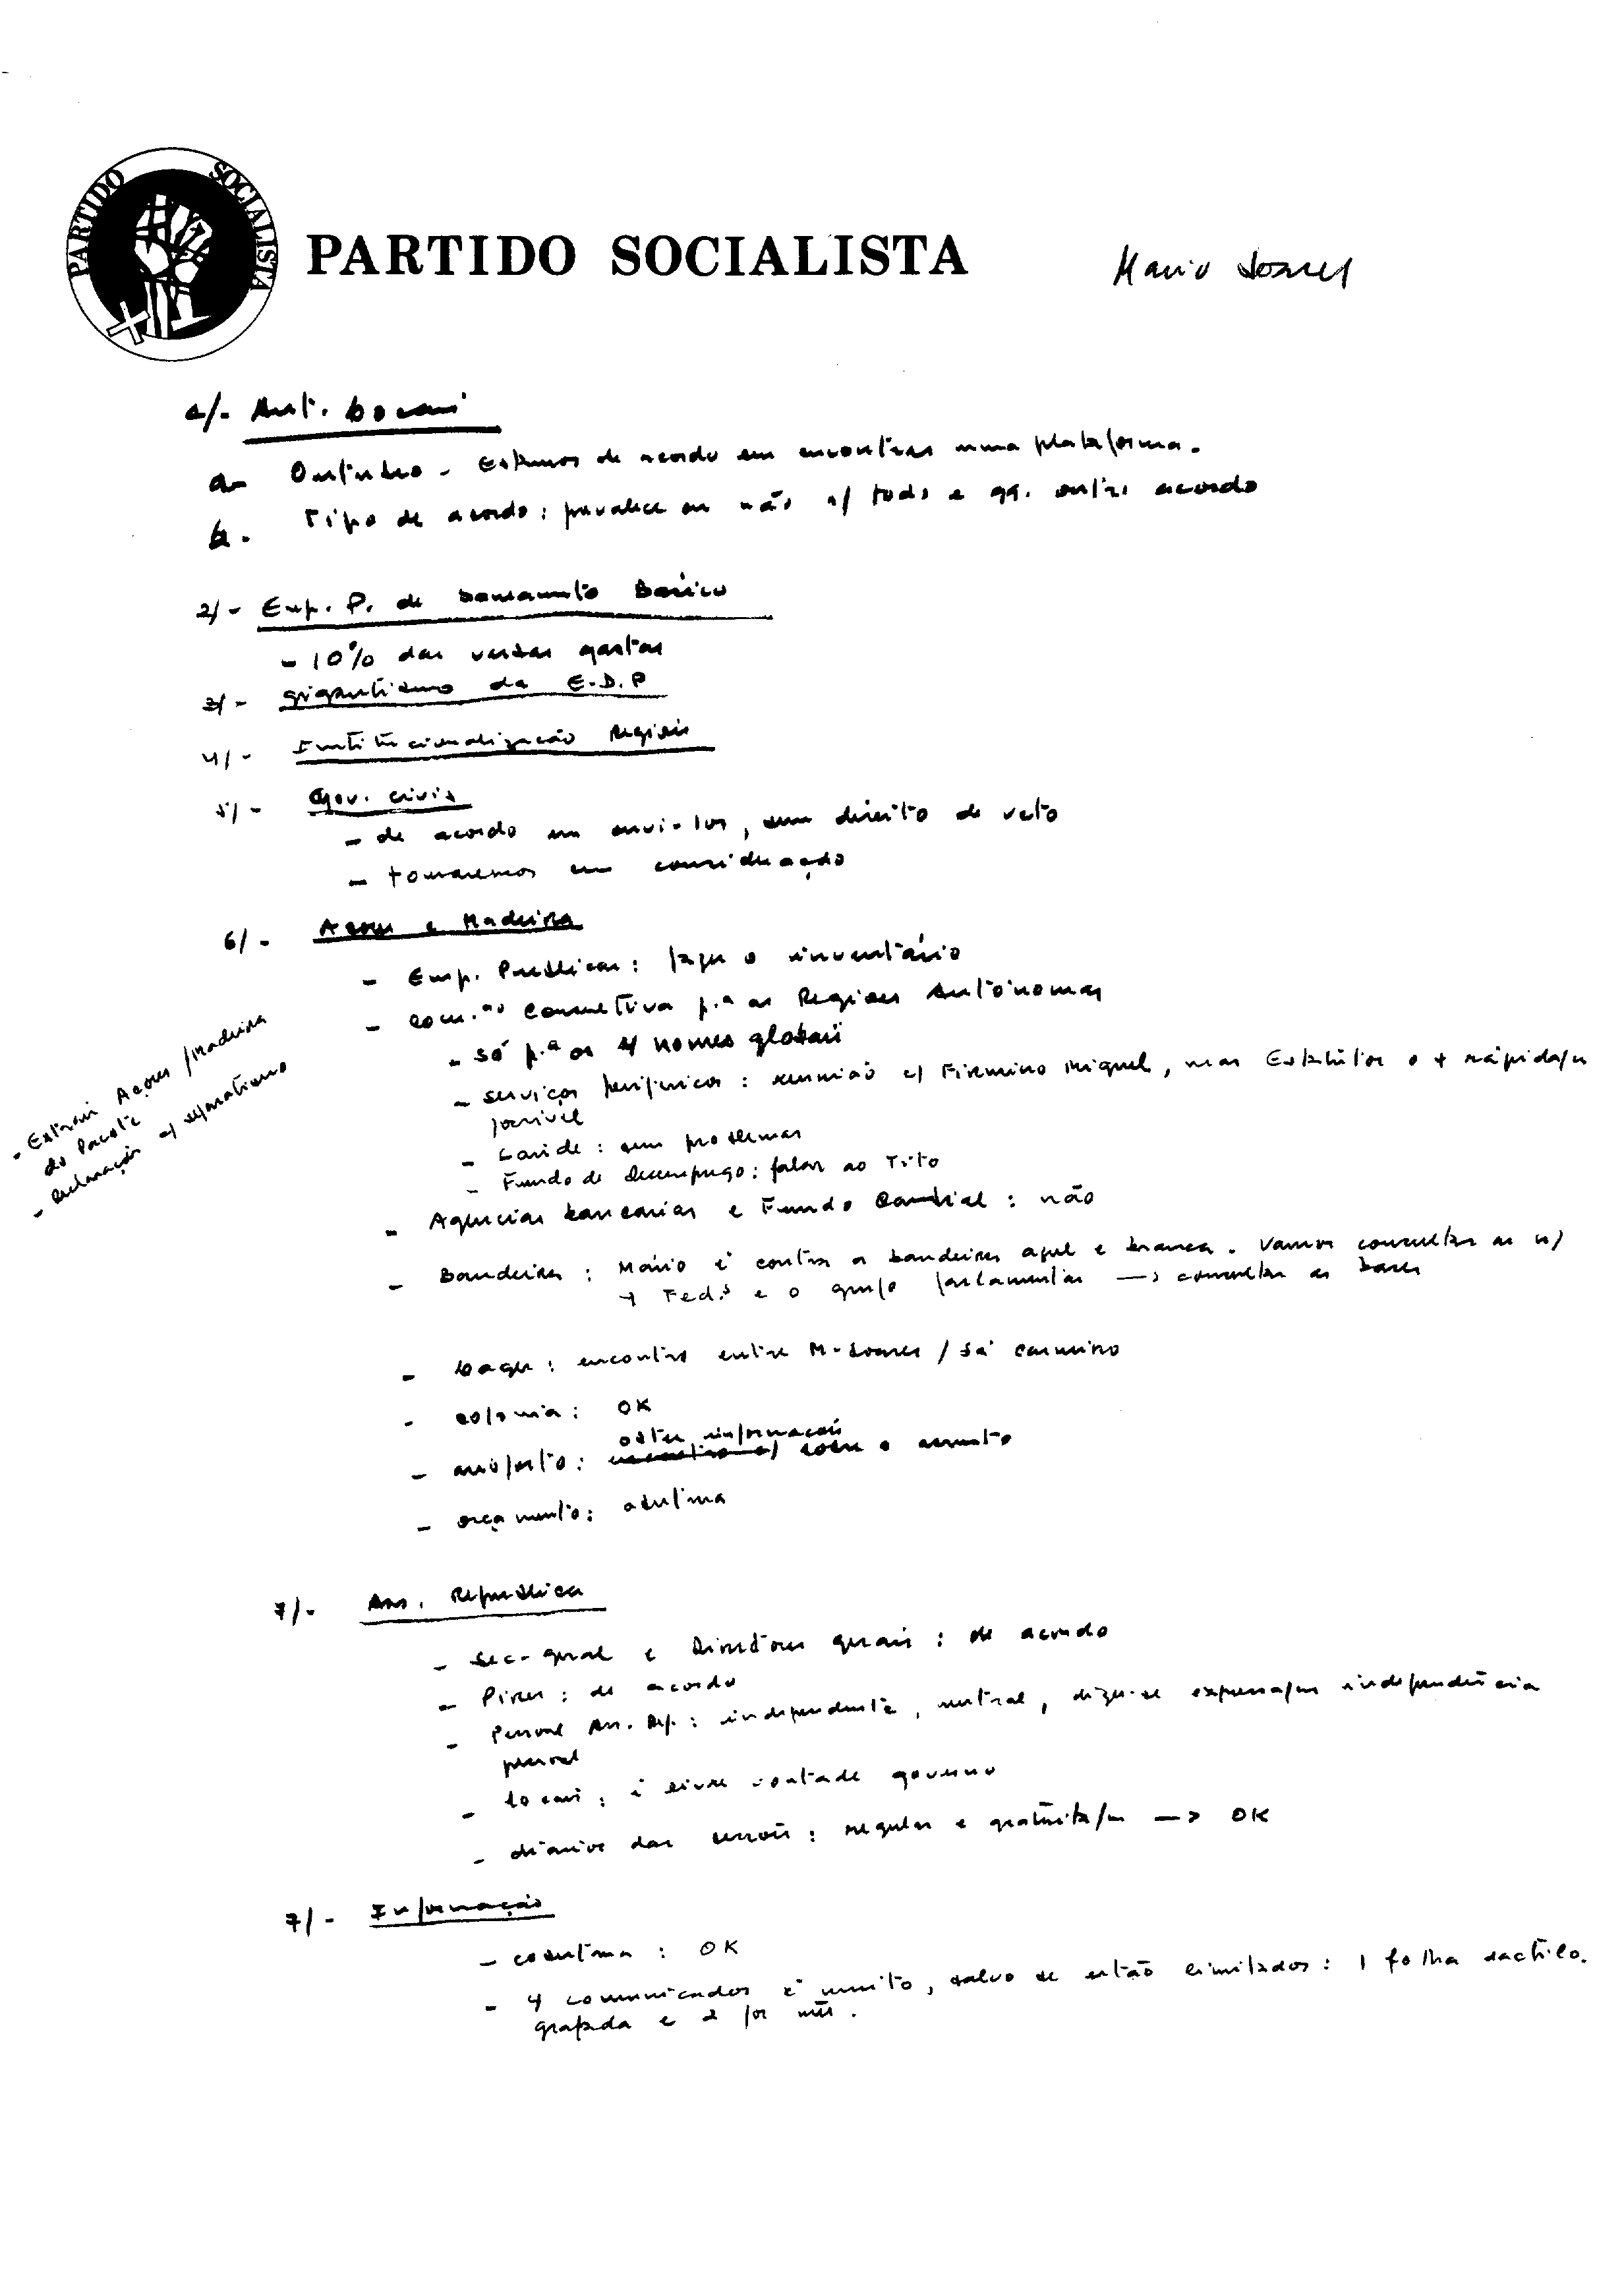 PARTIDO SOCIALISTA
PARTIDO SOCIALISTA
Mario Soares
1/- Aut. Locais
a- Outubro - Estamos de acordo em encontrar uma plataforma.
b. Tipo de acordo: prevalece ou não s/ todo e qq. outro acordo
2/- Emp. P. de Saneamento Básico
- 10% das verbas gastas
3/- gigantismo da E.D.P
4/- Institucionalização Regiões
5/- Gov. Civis
- de acordo em ouvi-los, sem direito de veto
- tomaremos em consideração
6/- Açores e Madeira
- Emp. Públicas: fazer o inventário
- Com.ão Consultiva p.ª as Regiões Autónomas
- só p.ª os 4 nomes globais
- serviços periféricos: reunião c/ Firmino Miguel, mas Estatutos o + rápida/e
possível
- Saúde: sem problemas
- Fundo de desemprego: falar ao Tito
- Extrair Açores/Madeira
do Pacote
- Declaração s/ separatismo
- Agências bancárias e Fundo Cambial: não
- Bandeiras: Mário é contra a bandeira azul e branca. Vamos consultar as n/
Fed.s e o grupo parlamentar → consultar as bases
- Lages: encontro entre M. Soares / Sá Carneiro
- colonia: OK
obter informações
- aeroporto: sobre o assunto
- orçamento:
7/- Ass. República
- Sec-geral e Directores gerais: de acordo
- Pires: de acordo
- Pessoal Ass. Rep.: independente, neutral, dizer-se expressa/e independência
pessoal
- Locais: é livre vontade governo
- diários das sessões: regular e gratuita/e → OK
7/- Informação
- coautoria: OK
- 4 comunicados é muito, salvo se estão limitados: 1 folha dactilo.
grafada e 2 por mês.